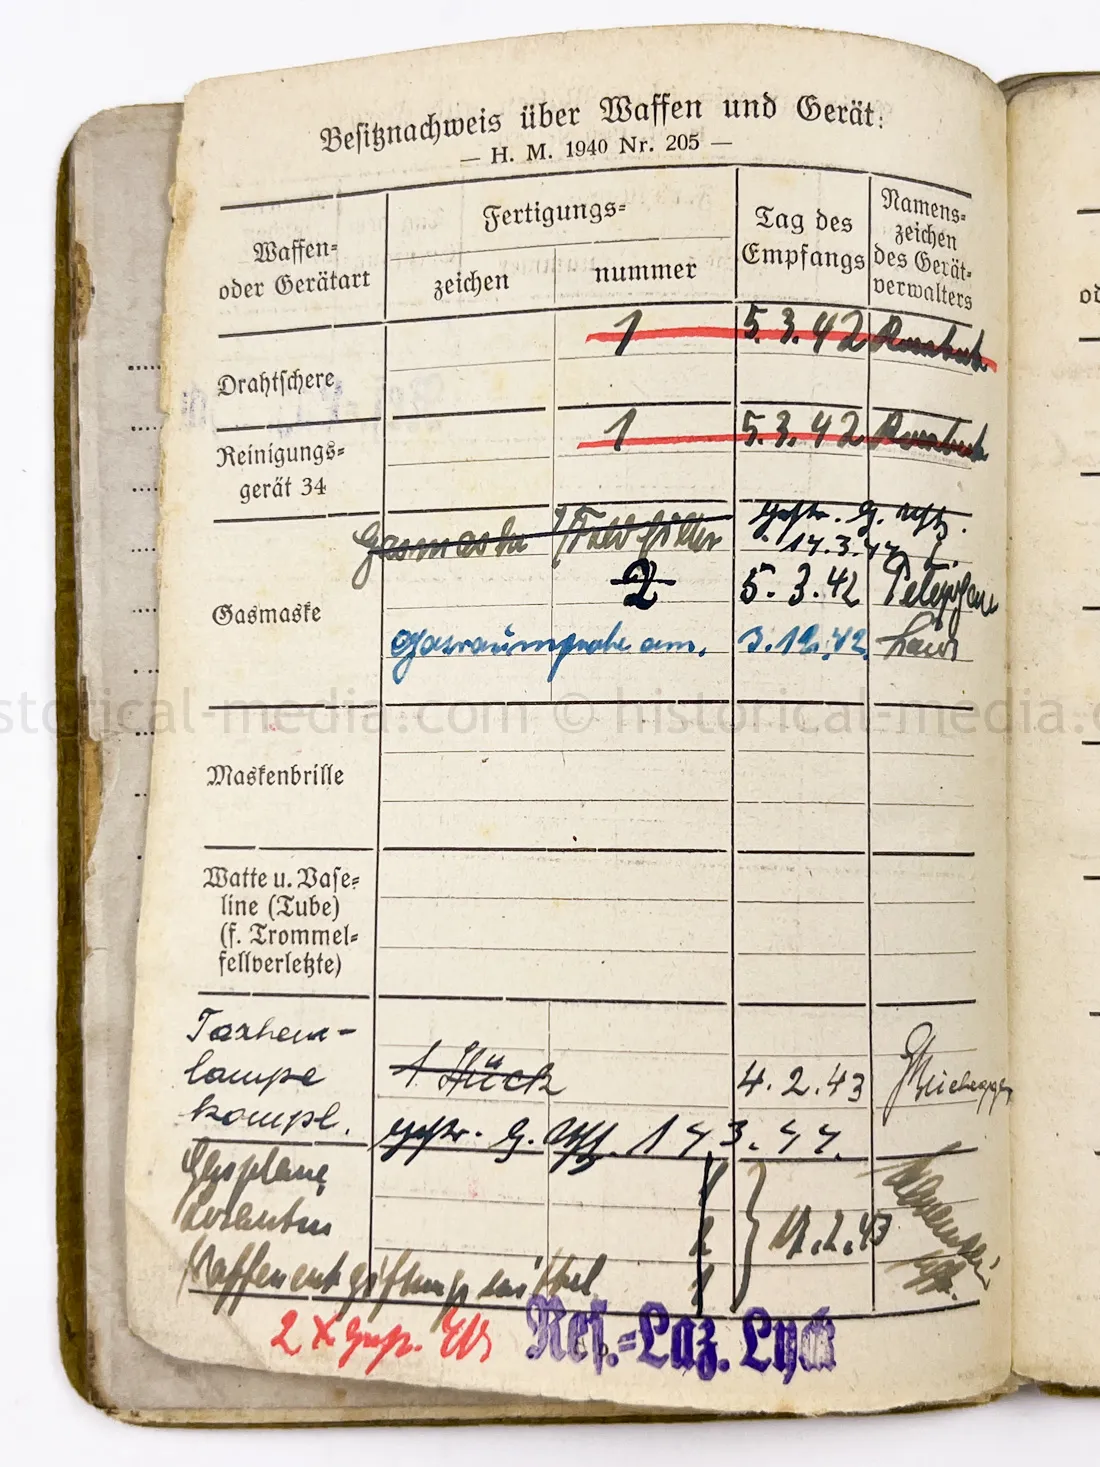 Besitznachweis über Waffen und Gerät.
— H. M. 1940 Nr. 205 —
Waffen-
oder Gerätart
Fertigungs-
zeichen
nummer
Tag des
Empfangs
Namens-
zeichen
des Gerät-
verwalters
Drahtschere
1 5.3.42
Reinigungs-
gerät 34
1 5.3.42
Gasmaske
Gasmaske
2 5.3.42
Gasraumprobe am. 3.12.42.
Maskenbrille
Watte u. Vase-
line (Tube)
(f. Trommel-
fellverletzte)
Taschen-
lampe
kompl.
1 Stück 4.2.43
gestr. G.
Gasplane 1
Losantin 2
Waffenentgiftungsmittel 1
.2.43
2 X
Res.-Laz. Lyck
od
historical-media.com © historical-media.c